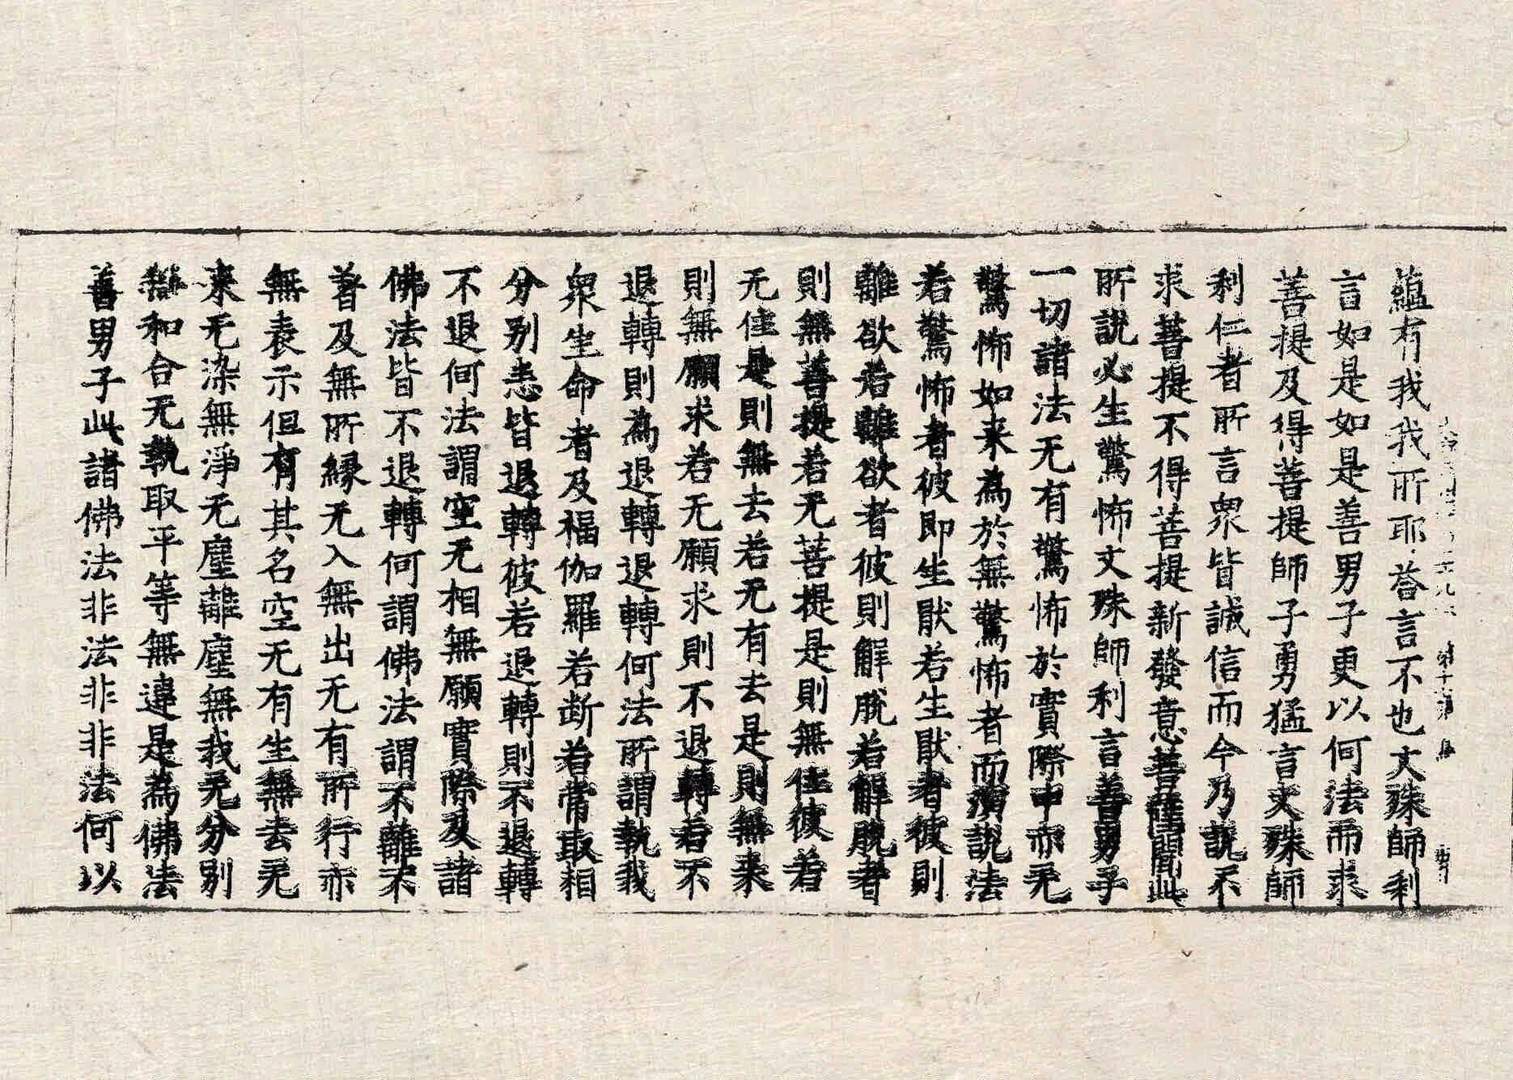 蘊有我我所耶荅言不也文殊師利
言如是如是善男子更以何法而求
菩提及得菩提師子勇猛言文殊師
利仁者所言衆皆誠信而今乃說不
求菩提不得菩提新發意菩薩聞此
所說必生驚怖文殊師利言善男子
一切諸法无有驚怖於實際中亦无
驚怖如来為於無驚怖者而演說法
若驚怖者彼即生猒若生猒者彼則
離欲若離欲者彼則解脫若解脫者
則無菩提若无菩提是則無住彼若
无住是則無去若无有去是則無来
則無願求若无願求則不退轉若不
退轉則為退轉退轉何法所謂執我
衆生命者及福伽羅若斷若常取相
分別悉皆退轉彼若退轉則不退轉
不退何法謂空无相無願實際及諸
佛法皆不退轉何謂佛法謂不離不
著及無所緣无入無出无有所行亦
無表示但有其名空无有生無去无
来无染無淨无塵離塵無我无分別
無和合无執取平等無違是為佛法
善男子此諸佛法非法非非法何以